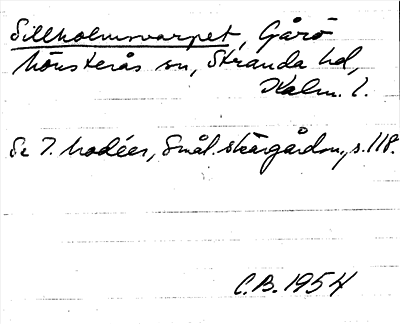 Sillholmsvarpet, Gårö
Mönsterås sn, Stranda hd,
Kalm. l.
Se T. Modéer, Smål. skärgårdsn., s. 118.
C.B. 1954